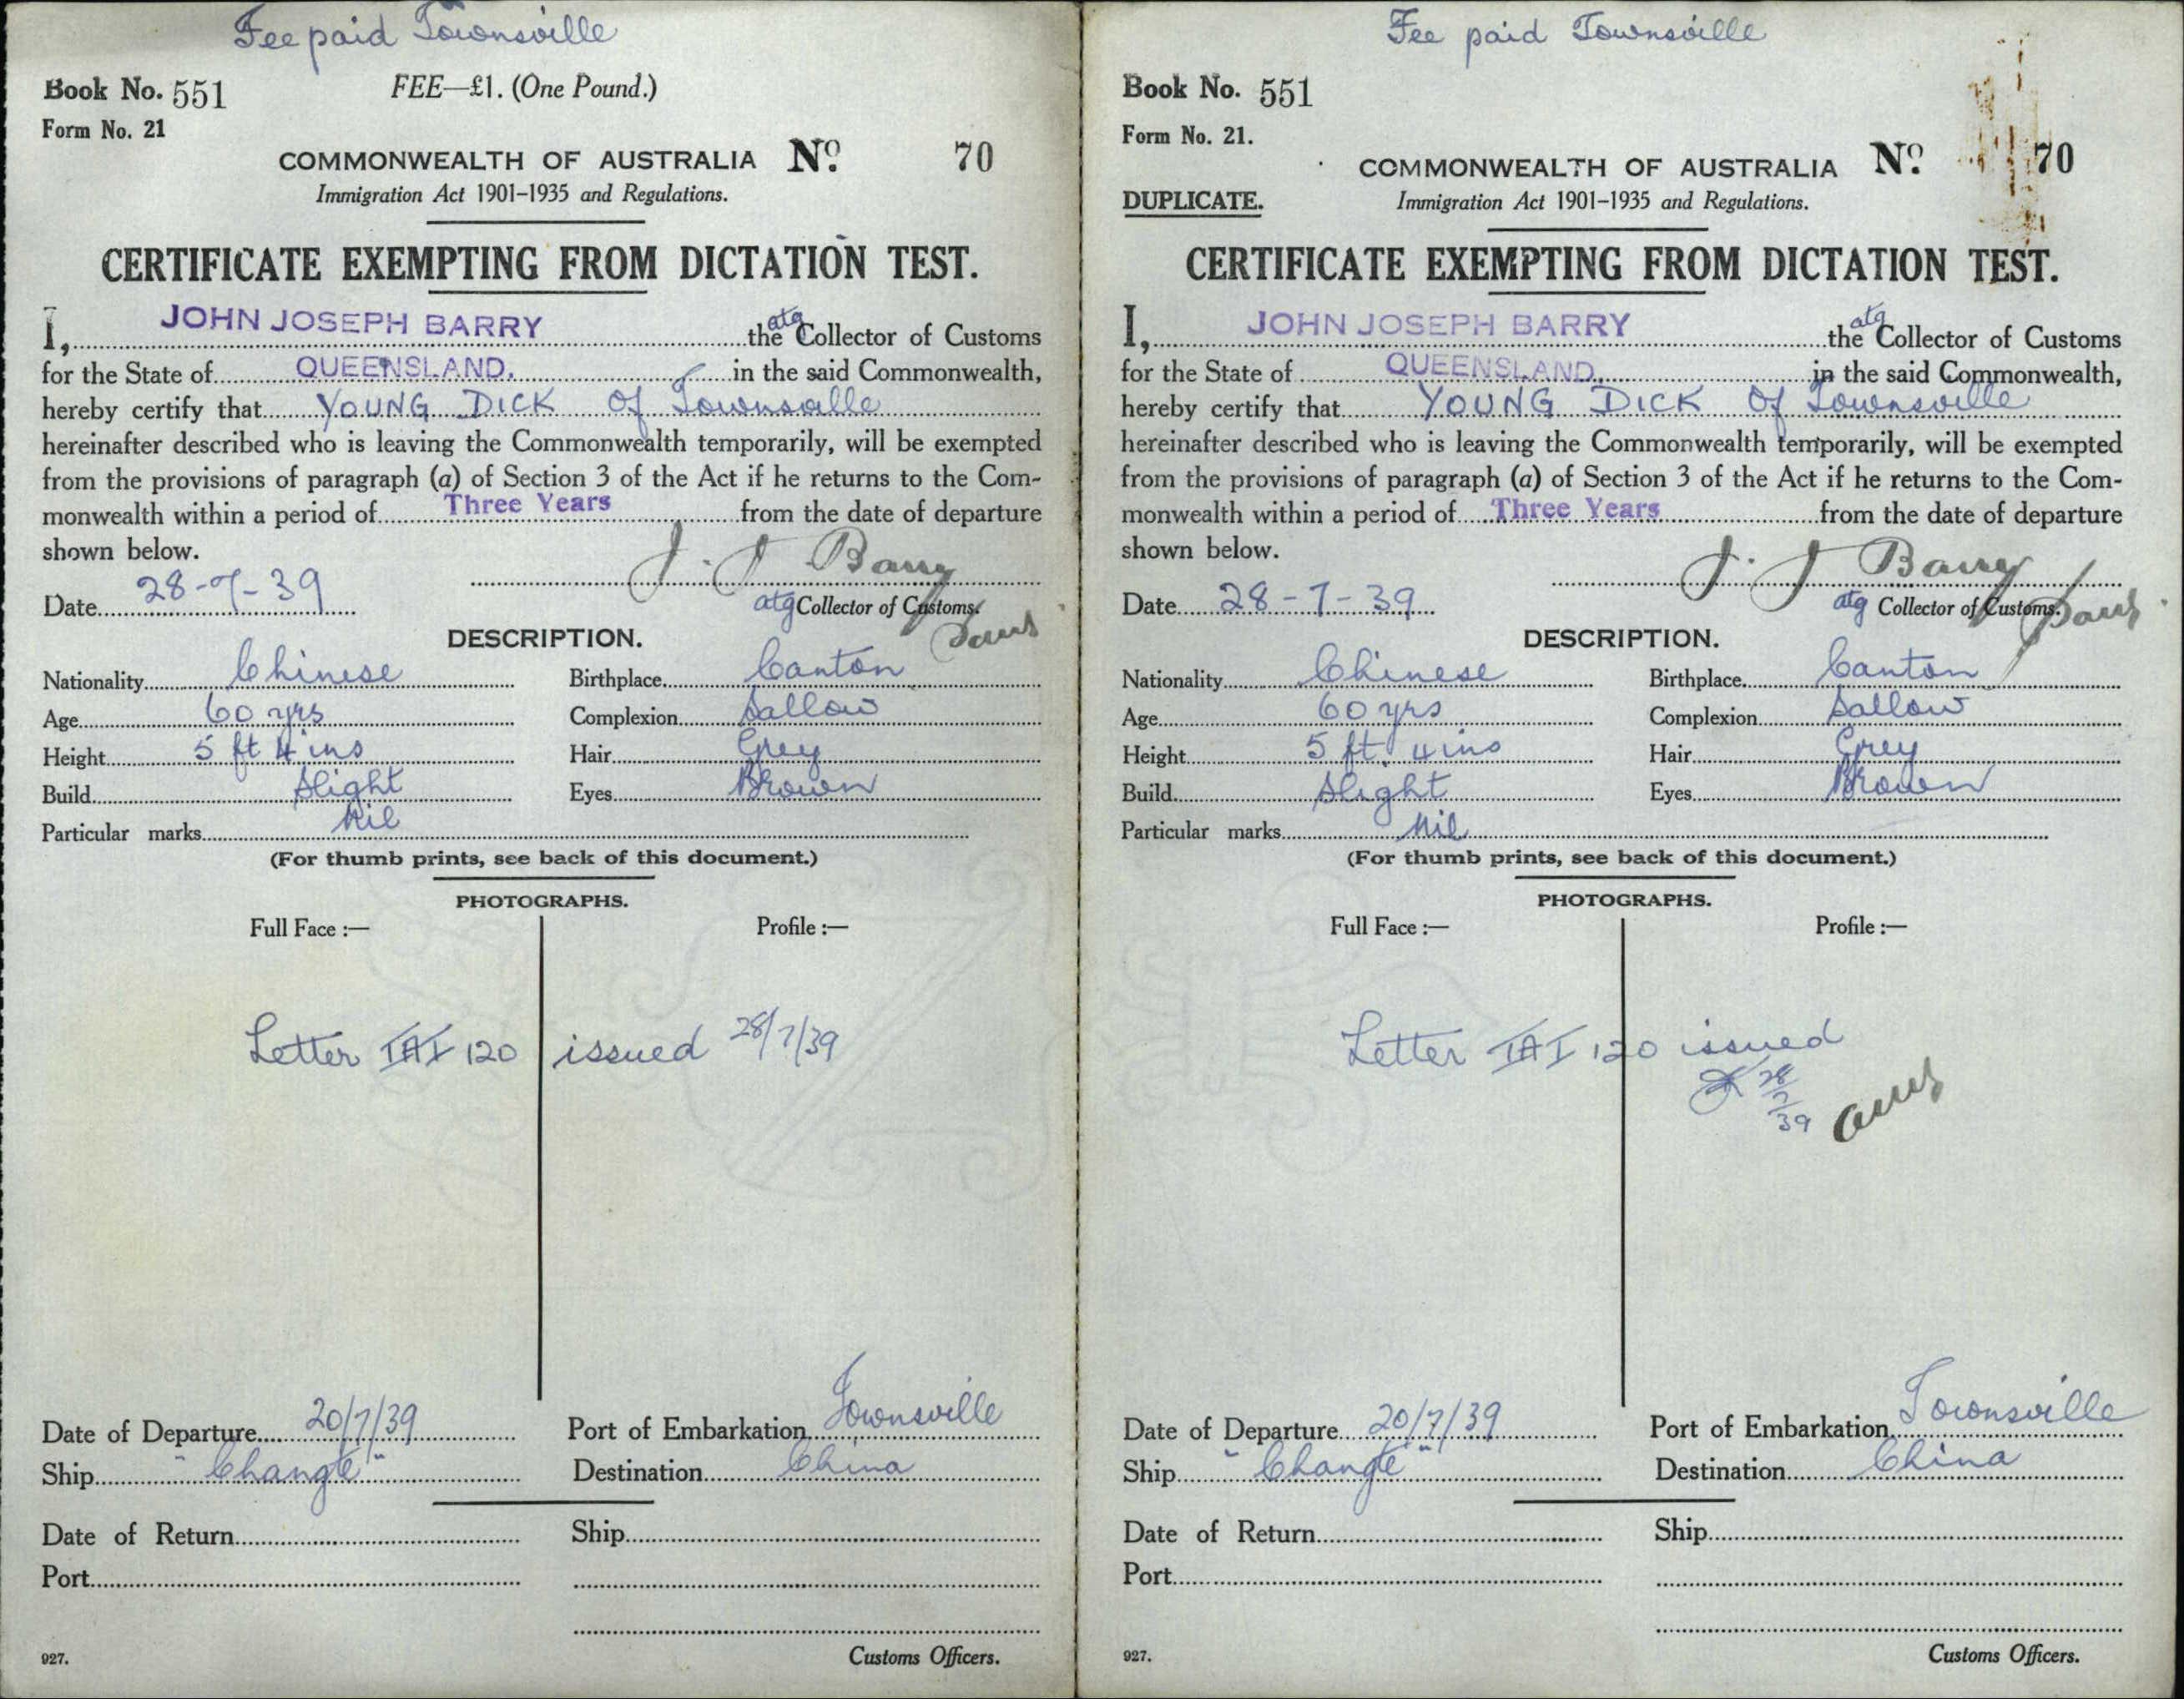 Fee paid Townsville
Book No. 551
FEE—£1. (One Pound.)
Form No. 21
COMMONWEALTH OF AUSTRALIA No. 70
Immigration Act 1901–1935 and Regulations.
CERTIFICATE EXEMPTING FROM DICTATION TEST.
I, JOHN JOSEPH BARRY the atg Collector of Customs
for the State of QUEENSLAND. in the said Commonwealth,
hereby certify that YOUNG DICK of Townsville
hereinafter described who is leaving the Commonwealth temporarily, will be exempted
from the provisions of paragraph (a) of Section 3 of the Act if he returns to the Com-
monwealth within a period of Three Years from the date of departure
shown below.
J. J. Barry
Date 28-7-39
atg Collector of Customs.
DESCRIPTION.
Nationality Chinese Birthplace Canton
Age 60 yrs Complexion Sallow
Height 5 ft 4 ins Hair Grey
Build Slight Eyes Brown
Particular marks Nil
(For thumb prints, see back of this document.)
PHOTOGRAPHS.
Full Face :— Profile :—
Letter 120 issued 28/7/39
Date of Departure 20/7/39 Port of Embarkation Townsville
Ship "Changte" Destination China
Date of Return Ship
Port
927. Customs Officers.
Fee paid Townsville
Book No. 551
Form No. 21.
COMMONWEALTH OF AUSTRALIA No. 70
DUPLICATE. Immigration Act 1901–1935 and Regulations.
CERTIFICATE EXEMPTING FROM DICTATION TEST.
I, JOHN JOSEPH BARRY the atg Collector of Customs
for the State of QUEENSLAND. in the said Commonwealth,
hereby certify that YOUNG DICK of Townsville
hereinafter described who is leaving the Commonwealth temporarily, will be exempted
from the provisions of paragraph (a) of Section 3 of the Act if he returns to the Com-
monwealth within a period of Three Years from the date of departure
shown below.
J. J. Barry
Date 28-7-39
atg Collector of Customs.
DESCRIPTION.
Nationality Chinese Birthplace Canton
Age 60 yrs Complexion Sallow
Height 5 ft. 4 ins Hair Grey
Build Slight Eyes Brown
Particular marks Nil
(For thumb prints, see back of this document.)
PHOTOGRAPHS.
Full Face :— Profile :—
Letter 120 issued
28/7/39
Date of Departure 20/7/39 Port of Embarkation Townsville
Ship "Changte" Destination China
Date of Return Ship
Port
927. Customs Officers.